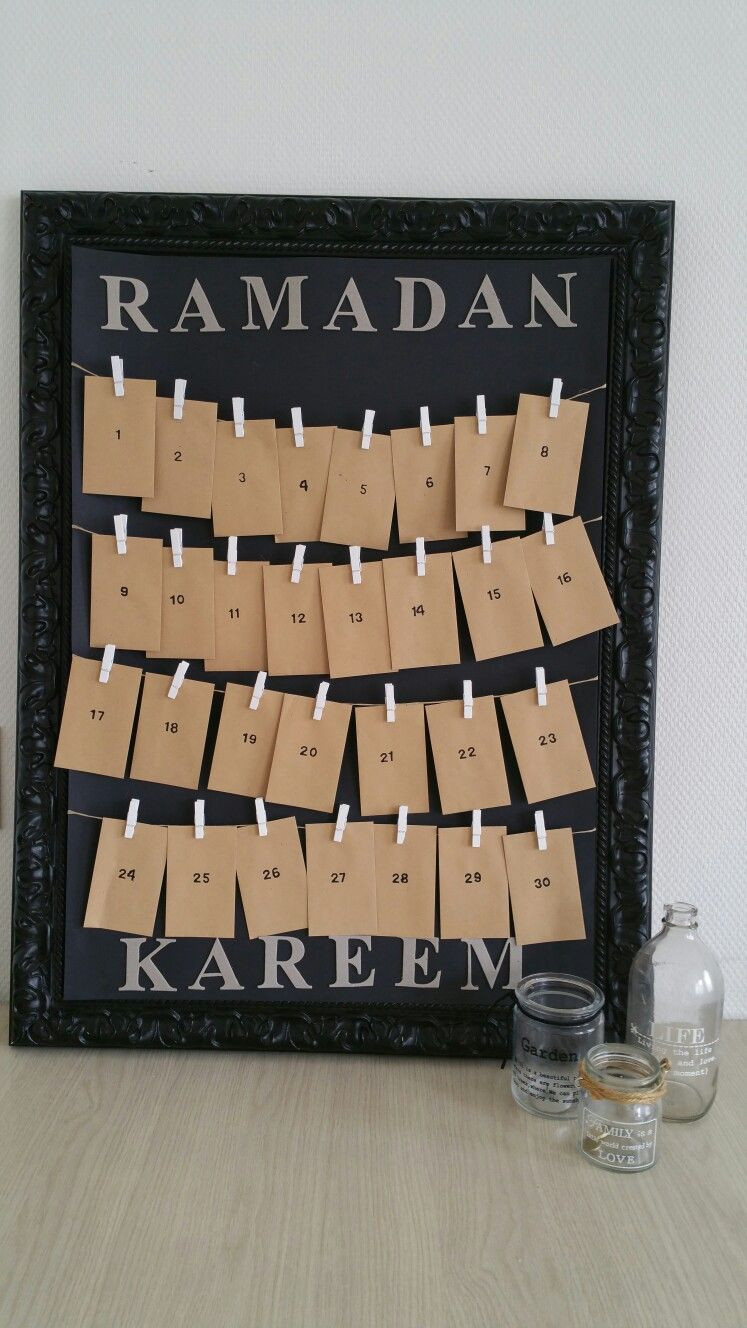 RAMADAN
1 2 3 4 5 6 7 8
9 10 11 12 13 14 15 16
17 18 19 20 21 22 23
24 25 26 27 28 29 30
KAREEM
Garden
is a beautiful
there are flower
where we can
and enjoy the
LIFE
the life
and love
moment)
FAMILY is a
world created by
LOVE